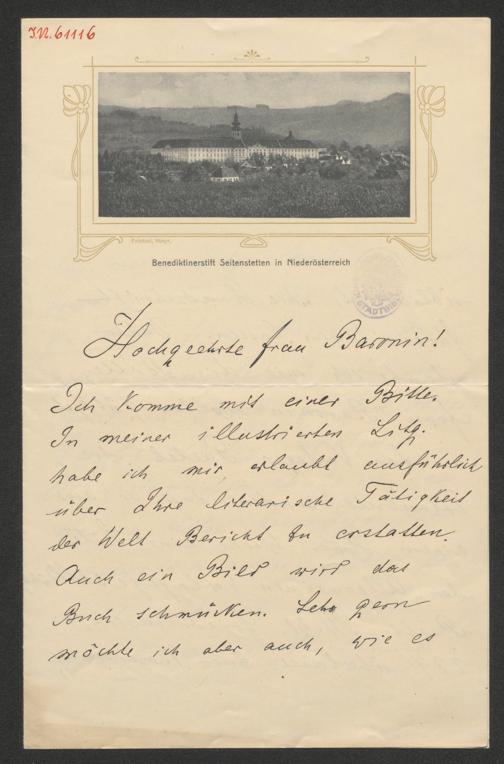 I.N. 61116
Benediktinerstift Seitenstetten in Niederösterreich
Hochgeehrte Frau Baronin!
Ich komme mit einer Bitte.
In meiner illustrierten Litg.
habe ich mir erlaubt ausführlich
über Ihre literarische Tätigkeit
der Welt Bericht zu erstatten.
Auch ein Bild wird das
Buch schmücken. Sehr gern
möchte ich aber auch, wie es